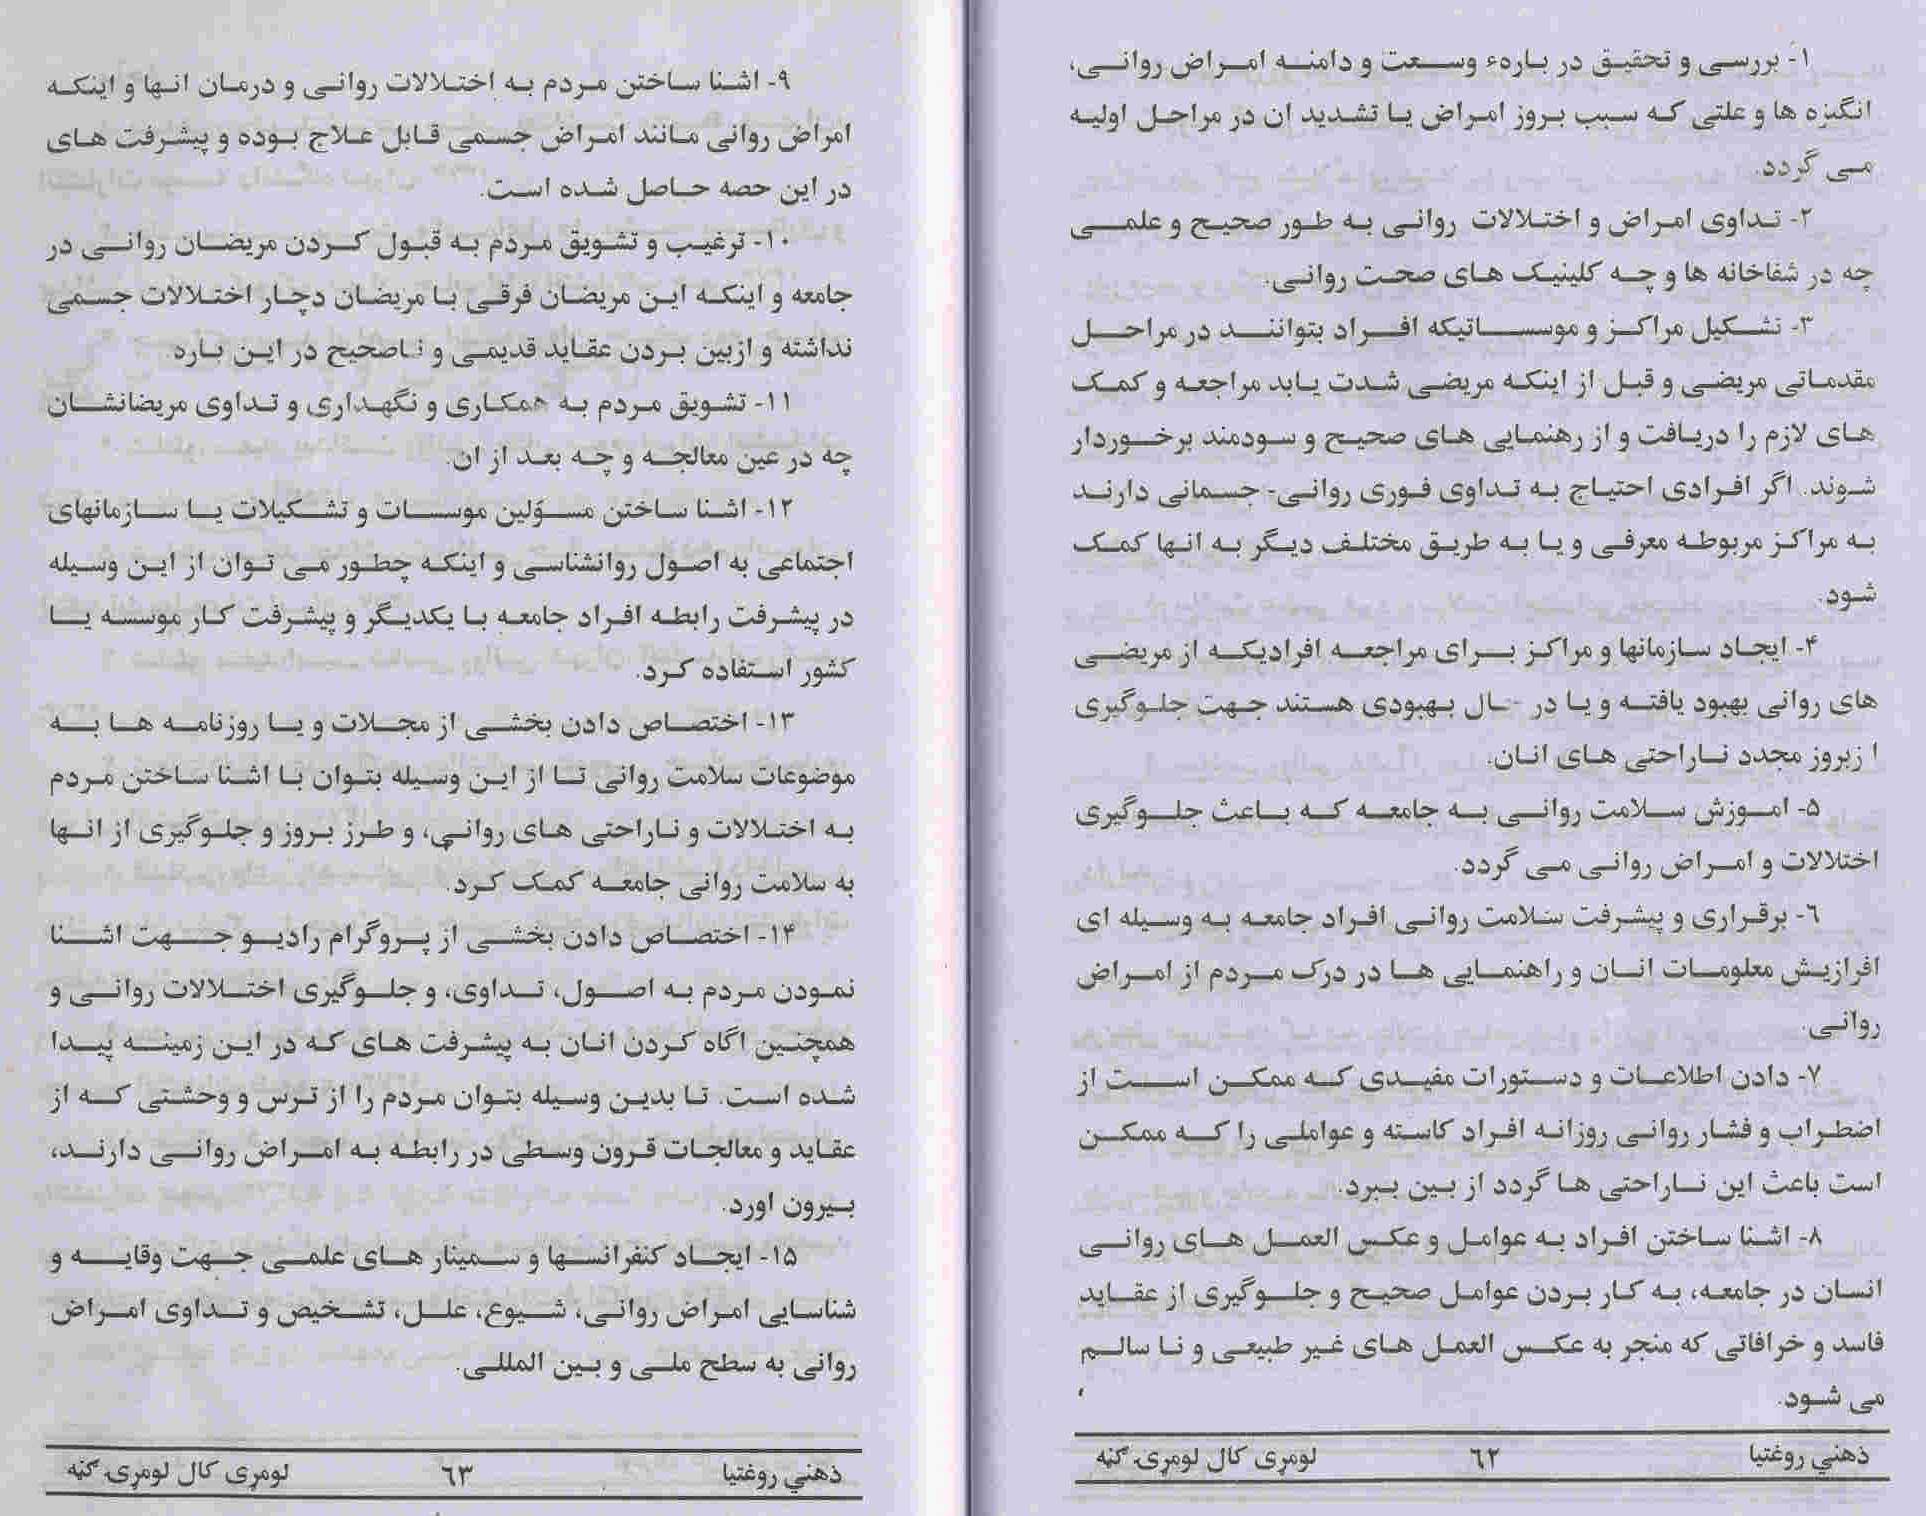 ۱- بررسی و تحقیق در بارهء وسعت و دامنه امراض روانی،
انگیزه ها و علتی که سبب بروز امراض یا تشدید ان در مراحل اولیه
می گردد.
۲- تداوی امراض و اختلالات روانی به طور صحیح و علمی
چه در شفاخانه ها و چه کلینیک های صحت روانی.
۳- تشکیل مراکز و موسساتیکه افراد بتوانند در مراحل
مقدماتی مریضی و قبل از اینکه مریضی شدت یابد مراجعه و کمک
های لازم را دریافت و از رهنمایی های صحیح و سودمند برخوردار
شوند. اگر افرادی احتیاج به تداوی فوری روانی- جسمانی دارند
به مراکز مربوطه معرفی و یا به طریق مختلف دیگر به انها کمک
شود.
۴- ایجاد سازمانها و مراکز برای مراجعه افرادیکه از مریضی
های روانی بهبود یافته و یا در حال بهبودی هستند جهت جلوگیری
ا زبروز مجدد ناراحتی های انان.
۵- اموزش سلامت روانی به جامعه که باعث جلوگیری
اختلالات و امراض روانی می گردد.
٦- برقراری و پیشرفت سلامت روانی افراد جامعه به وسیله ای
افرازیش معلومات انان و راهنمایی ها در درک مردم از امراض
روانی.
۷- دادن اطلاعات و دستورات مفیدی که ممکن است از
اضطراب و فشار روانی روزانه افراد کاسته و عواملی را که ممکن
است باعث این ناراحتی ها گردد از بین ببرد.
۸- اشنا ساختن افراد به عوامل و عکس العمل های روانی
انسان در جامعه، به کار بردن عوامل صحیح و جلوگیری از عقاید
فاسد و خرافاتی که منجر به عکس العمل های غیر طبیعی و نا سالم
می شود.
ذهني روغتیا ٦۲ لومړی کال لومړۍ ګڼه
۹- اشنا ساختن مردم به اختلالات روانی و درمان انها و اینکه
امراض روانی مانند امراض جسمی قابل علاج بوده و پیشرفت های
در این حصه حاصل شده است.
۱۰- ترغیب و تشویق مردم به قبول کردن مریضان روانی در
جامعه و اینکه این مریضان فرقی با مریضان دچار اختلالات جسمی
نداشته و ازبین بردن عقاید قدیمی و ناصحیح در این باره.
۱۱- تشویق مردم به همکاری و نگهداری و تداوی مریضانشان
چه در عین معالجه و چه بعد از ان.
۱۲- اشنا ساختن مسؤلین موسسات و تشکیلات یا سازمانهای
اجتماعی به اصول روانشناسی و اینکه چطور می توان از این وسیله
در پیشرفت رابطه افراد جامعه با یکدیگر و پیشرفت کار موسسه یا
کشور استفاده کرد.
۱۳- اختصاص دادن بخشی از مجلات و یا روزنامه ها به
موضوعات سلامت روانی تا از این وسیله بتوان با اشنا ساختن مردم
به اختلالات و ناراحتی های روانی، و طرز بروز و جلوگیری از انها
به سلامت روانی جامعه کمک کرد.
۱۴- اختصاص دادن بخشی از پروگرام رادیو جهت اشنا
نمودن مردم به اصول، تداوی، و جلوگیری اختلالات روانی و
همچنین اگاه کردن انان به پیشرفت های که در این زمینه پیدا
شده است. تا بدین وسیله بتوان مردم را از ترس و وحشتی که از
عقاید و معالجات قرون وسطی در رابطه به امراض روانی دارند،
بیرون اورد.
۱۵- ایجاد کنفرانسها و سمینار های علمی جهت وقایه و
شناسایی امراض روانی، شیوع، علل، تشخیص و تداوی امراض
روانی به سطح ملی و بین المللی.
ذهني روغتیا ٦۳ لومړی کال لومړۍ ګڼه